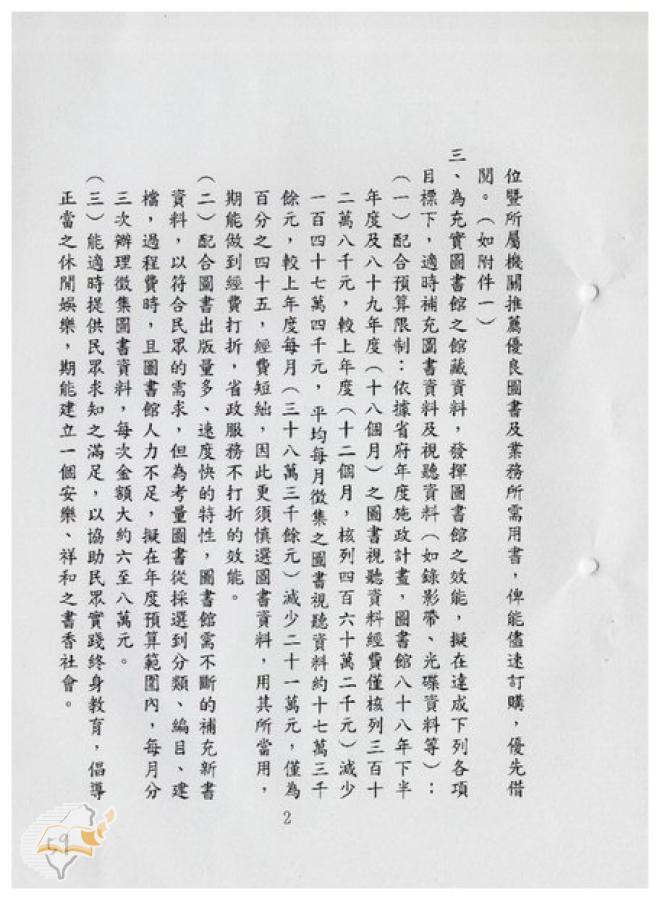 位暨所屬機關推薦優良圖書及業務所需用書，俾能儘速訂購，優先借
閱。（如附件一）
三、為充實圖書館之館藏資料，發揮圖書館之效能，擬在達成下列各項
目標下，適時補充圖書資料及視聽資料（如錄影帶、光碟資料等）：
（一）配合預算限制：依據省府年度施政計畫，圖書館八十八年下半
年度及八十九年度（十八個月）之圖書視聽資料經費僅核列三百十
二萬八千元，較上年度（十二個月，核列四百六十萬二千元）減少
一百四十七萬四千元，平均每月徵集之圖書視聽資料約十七萬三千
餘元，較上年度每月（三十八萬三千餘元）減少二十一萬元，僅為
百分之四十五，經費短絀，因此更須慎選圖書資料，用其所當用，
期能做到經費打折，省政服務不打折的效能。
（二）配合圖書出版量多、速度快的特性，圖書館需不斷的補充新書
資料，以符合民眾的需求，但為考量圖書從採選到分類、編目、建
檔，過程費時，且圖書館人力不足，擬在年度預算範圍內，每月分
三次辦理徵集圖書資料，每次金額大約六至八萬元。
（三）能適時提供民眾求知之滿足，以協助民眾實踐終身教育，倡導
正當之休閒娛樂，期能建立一個安樂、祥和之書香社會。
2
59